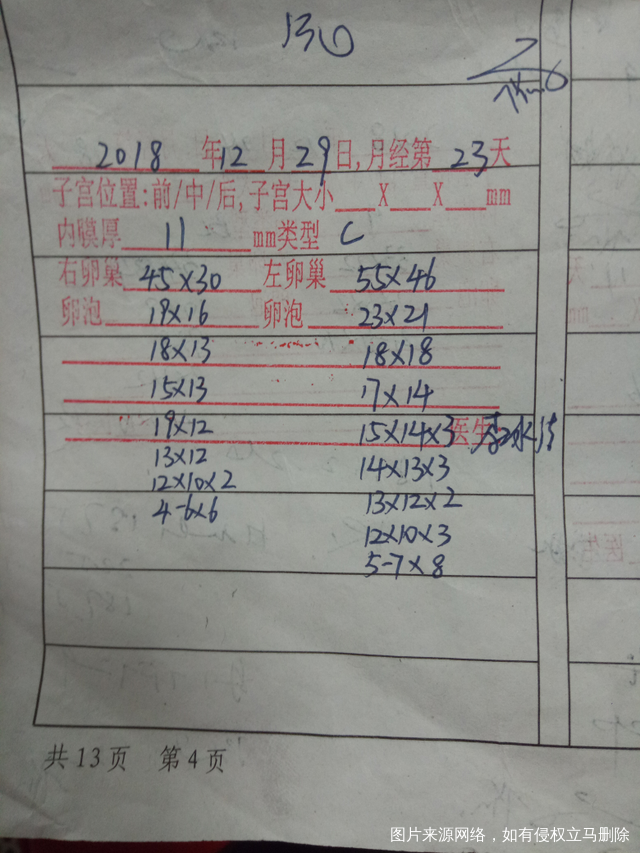 2018年12月29日,月经第23天
子宫位置:前/中/后,子宫大小___X___X___mm
内膜厚 11 mm类型 C
右卵巢 45×30 左卵巢 55×46
卵泡 19×16 卵泡 23×21
18×13 18×18
15×13 17×14
19×12 15×14×3 医生
13×12 14×13×3
12×10×2 13×12×2
4-6×6 12×10×3
5-7×8
医生
共13页 第4页
图片来源网络，如有侵权立马删除